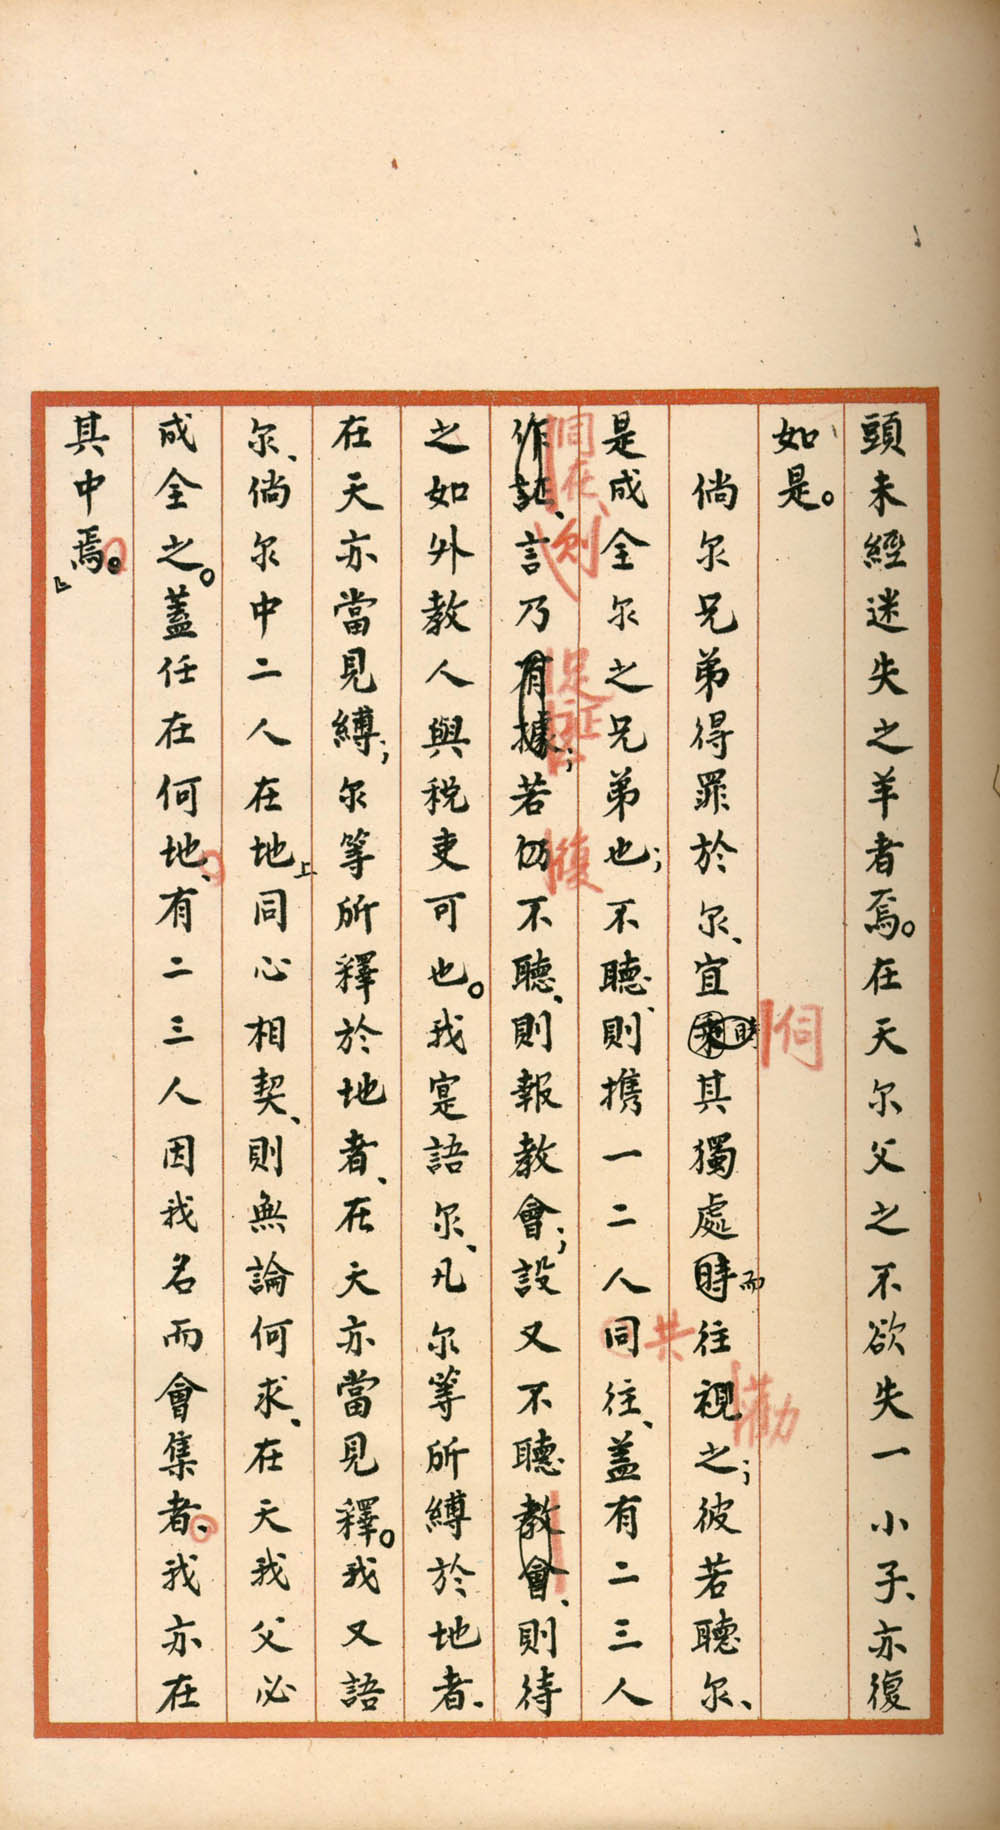 頭未經迷失之羊者焉。在天尔父之不欲失一小子、亦復
如是。
伺
倘尔兄弟得罪於尔、宜乘時其獨處時而往視之；彼若聽尔、
共勸
是成全尔之兄弟也；不聽、則携一二人同往、蓋有二三人
同在、則足証復
作証、言乃有據；若仍不聽、則報教會；設又不聽教會、則待
之如外教人與稅吏可也。我寔語尔、凡尔等所縛於地者、
在天亦當見縛；尔等所釋於地者、在天亦當見釋。我又語
尔、倘尔中二人在地上同心相契、則無論何求、在天我父必
成全之。蓋任在何地、有二三人因我名而會集者、我亦在
其中焉。』